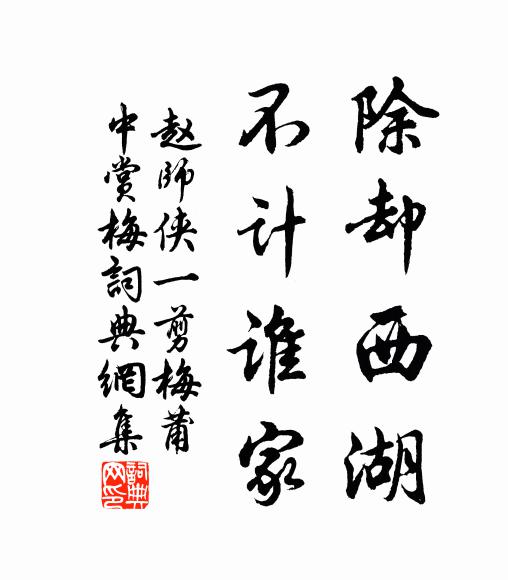 除却西湖
不计谁家
赵师侠一剪梅莆
中赏梅詞典網集
詞典网印